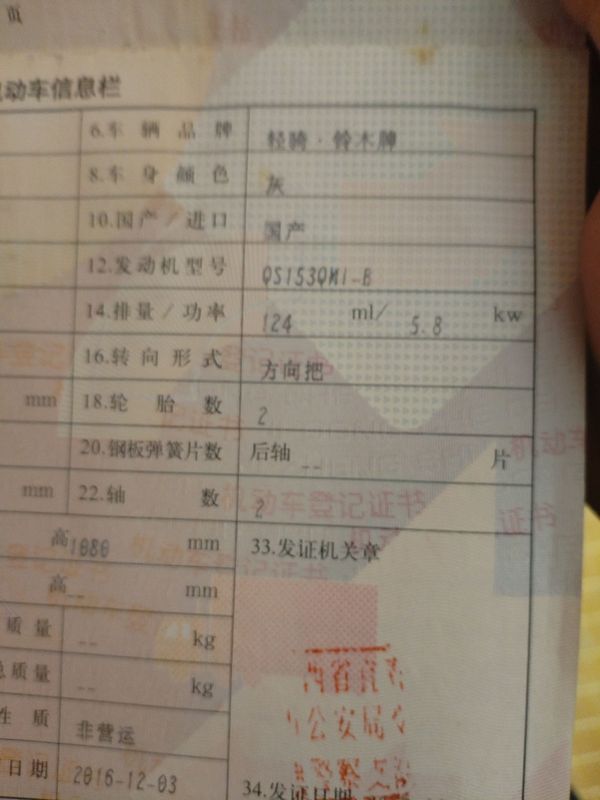 页
动车信息栏
6.车辆品牌 轻骑·铃木牌
8.车身颜色 灰
10.国产/进口 国产
12.发动机型号 QS153QMI-B
14.排量/功率 124 ml/ 5.8 kw
16.转向形式 方向把
mm 18.轮胎数 2
20.钢板弹簧片数 后轴 -- 片
mm 22.轴数 2
高1080 mm 33.发证机关章
高-- mm
质量 -- kg
总质量 -- kg
性质 非营运
日期 2016-12-03
34.发证日期
机动车登记证书
证书
西省宜春
公安局交